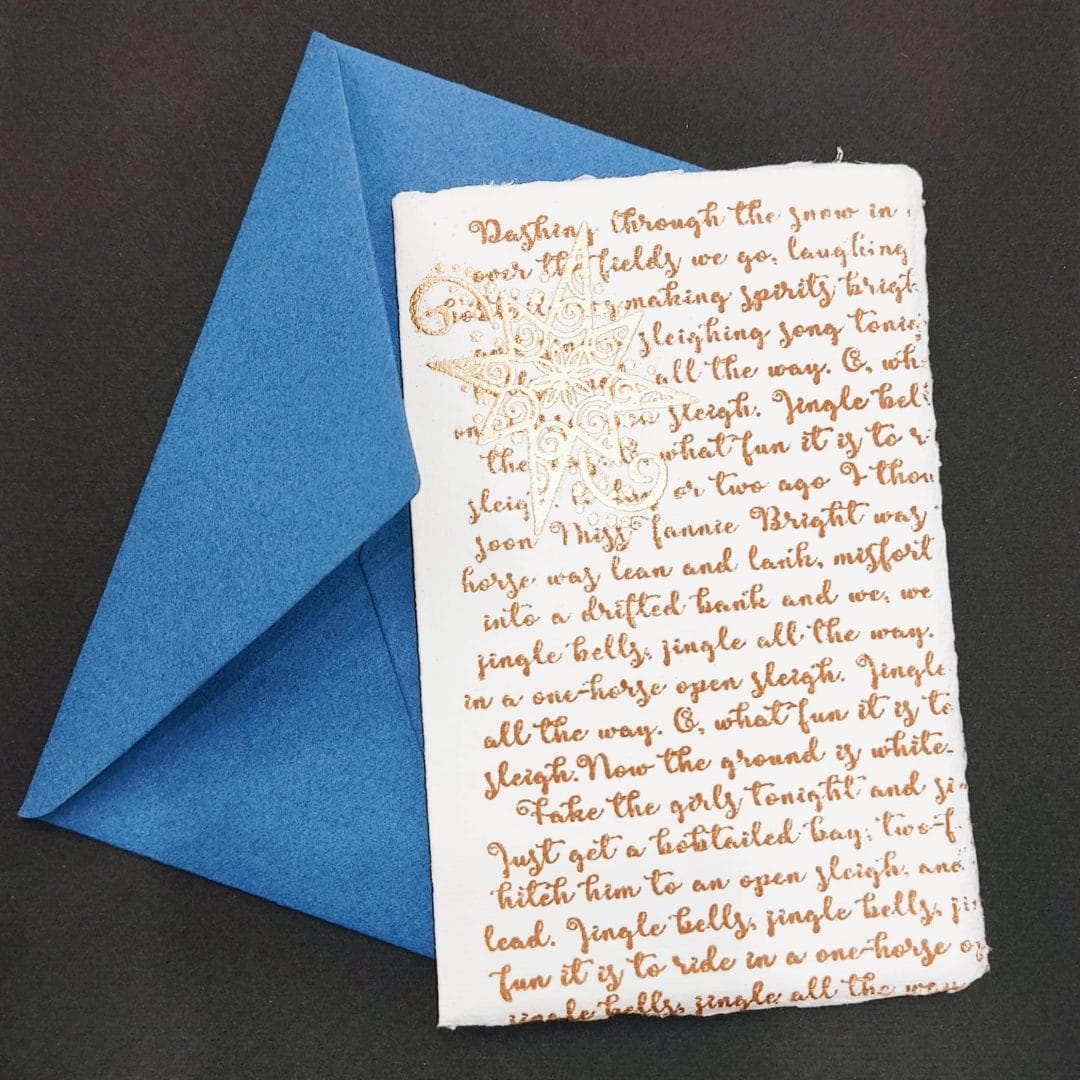 Dashing through the snow in
over the fields we go, laughing
making spirits brigh
sleighing song tonig
all the way. O, wh
sleigh. Jingle bel
the what fun it is to r
sleigh. or two ago I thou
soon Miss Fannie Bright was
horse was lean and lank, misfort
into a drifted bank and we, we
jingle bells, jingle all the way.
in a one-horse open sleigh. Jingle
all the way. O, what fun it is to
sleigh. Now the ground is white
Take the girls tonight and si
Just get a bobtailed bay; two-f
hitch him to an open sleigh, and
lead. Jingle bells, jingle bells, ji
fun it is to ride in a one-horse o
jingle bells, jingle all the way